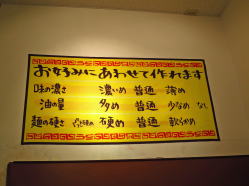 お好みにあわせて作れます
味の濃さ 濃いめ 普通 薄め
油の量 多め 普通 少なめ なし
麺の硬さ 硬め 普通 軟らかめ